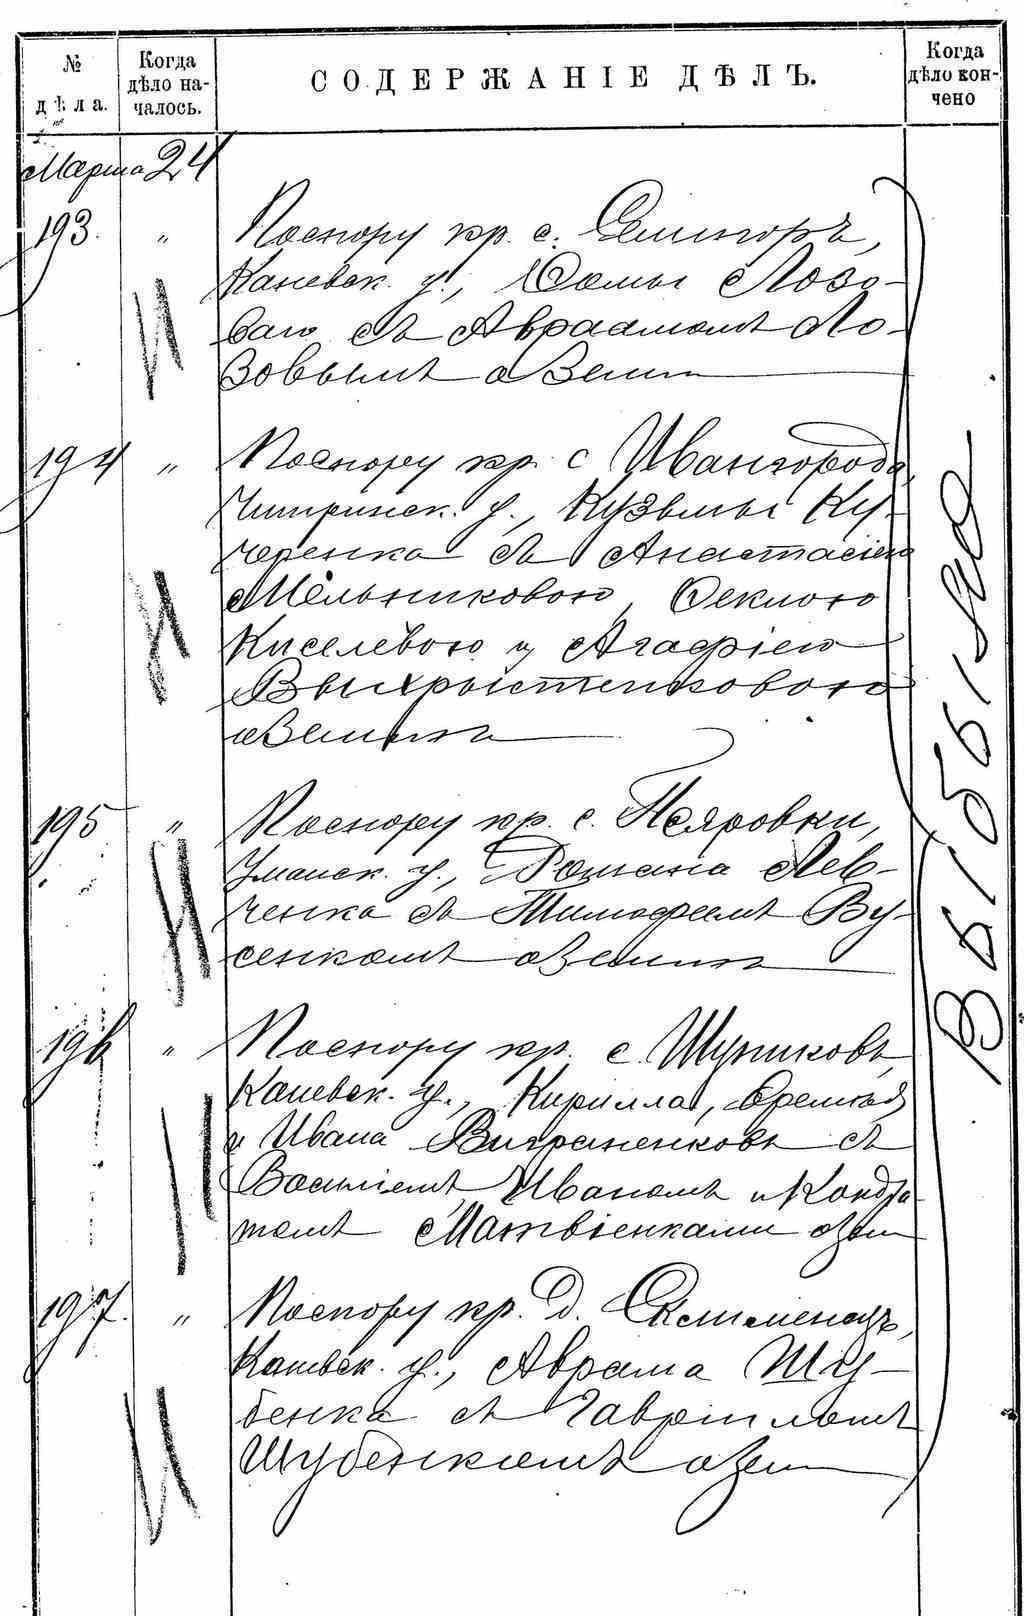 № дѣла.
Когда дѣло началось.
СОДЕРЖАНІЕ ДѢЛЪ.
Когда дѣло кончено
Марта 24
193. " По спору кр. с. Селищоръ,
Каневск. у.,
Лозо-
ваго съ Авраамомъ Ло-
зовымъ о земл
194 " По спору кр. с Ивангорода,
Чигринск. у., Кузьмы Ку-
черенка съ Анастасіею
Мельниковою, Феклою
Киселёвою и Агафіею
о земли
195 " По спору кр. с.
Уманск. у., Романа Лев-
ченка съ Тимофеемъ Ву-
сенкомъ о земли
196 " По спору кр. с.
Каневск. у., Кирилла, Еремѣя
и Ивана съ
Василіемъ, Иваномъ и Кондра
томъ Матвіенками о зем
197. " По спору кр. д.
Каневск. у., Аврама Шу-
бенка съ Гавріиломъ
Шубенкомъ о зем